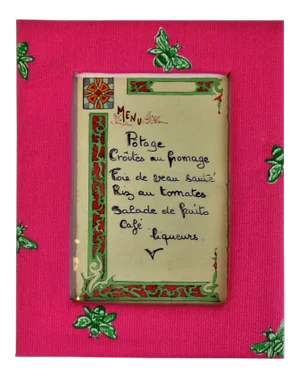 MENU
Potage
Croûtes au fromage
Foie de veau sauté
Riz au tomates
Salade de fruits
Café
liqueurs